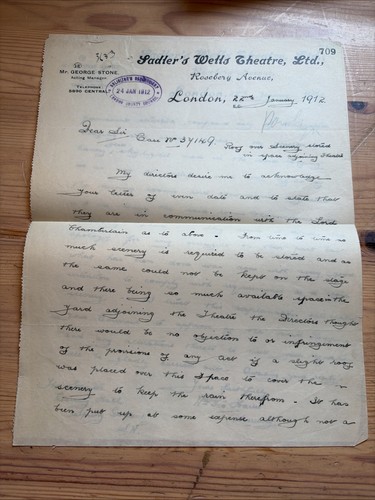 709
Sadler's Wells Theatre, Ltd.,
Mr. GEORGE STONE,
Acting Manager.
Rosebery Avenue,
TELEPHONE
5890 CENTRAL
24 JAN 1912
London, January, 1912
Dear Sir
Case No 37149. Roof over Scenery stored
in space adjoining Theatre
My directors desire me to acknowledge
your letter of even date and to state that
they are in communication with the Lord
Chamberlain as to above. From time to time so
much scenery is required to be stored and as
the same could not be kept on the stage
and there being so much available space in the
yard adjoining the Theatre the Directors thought
there would be no objection to or infringement
of the provisions of any act if a slight roof
was placed over this space to cover the
scenery to keep the rain therefrom. It has
been put up at some expense although not a